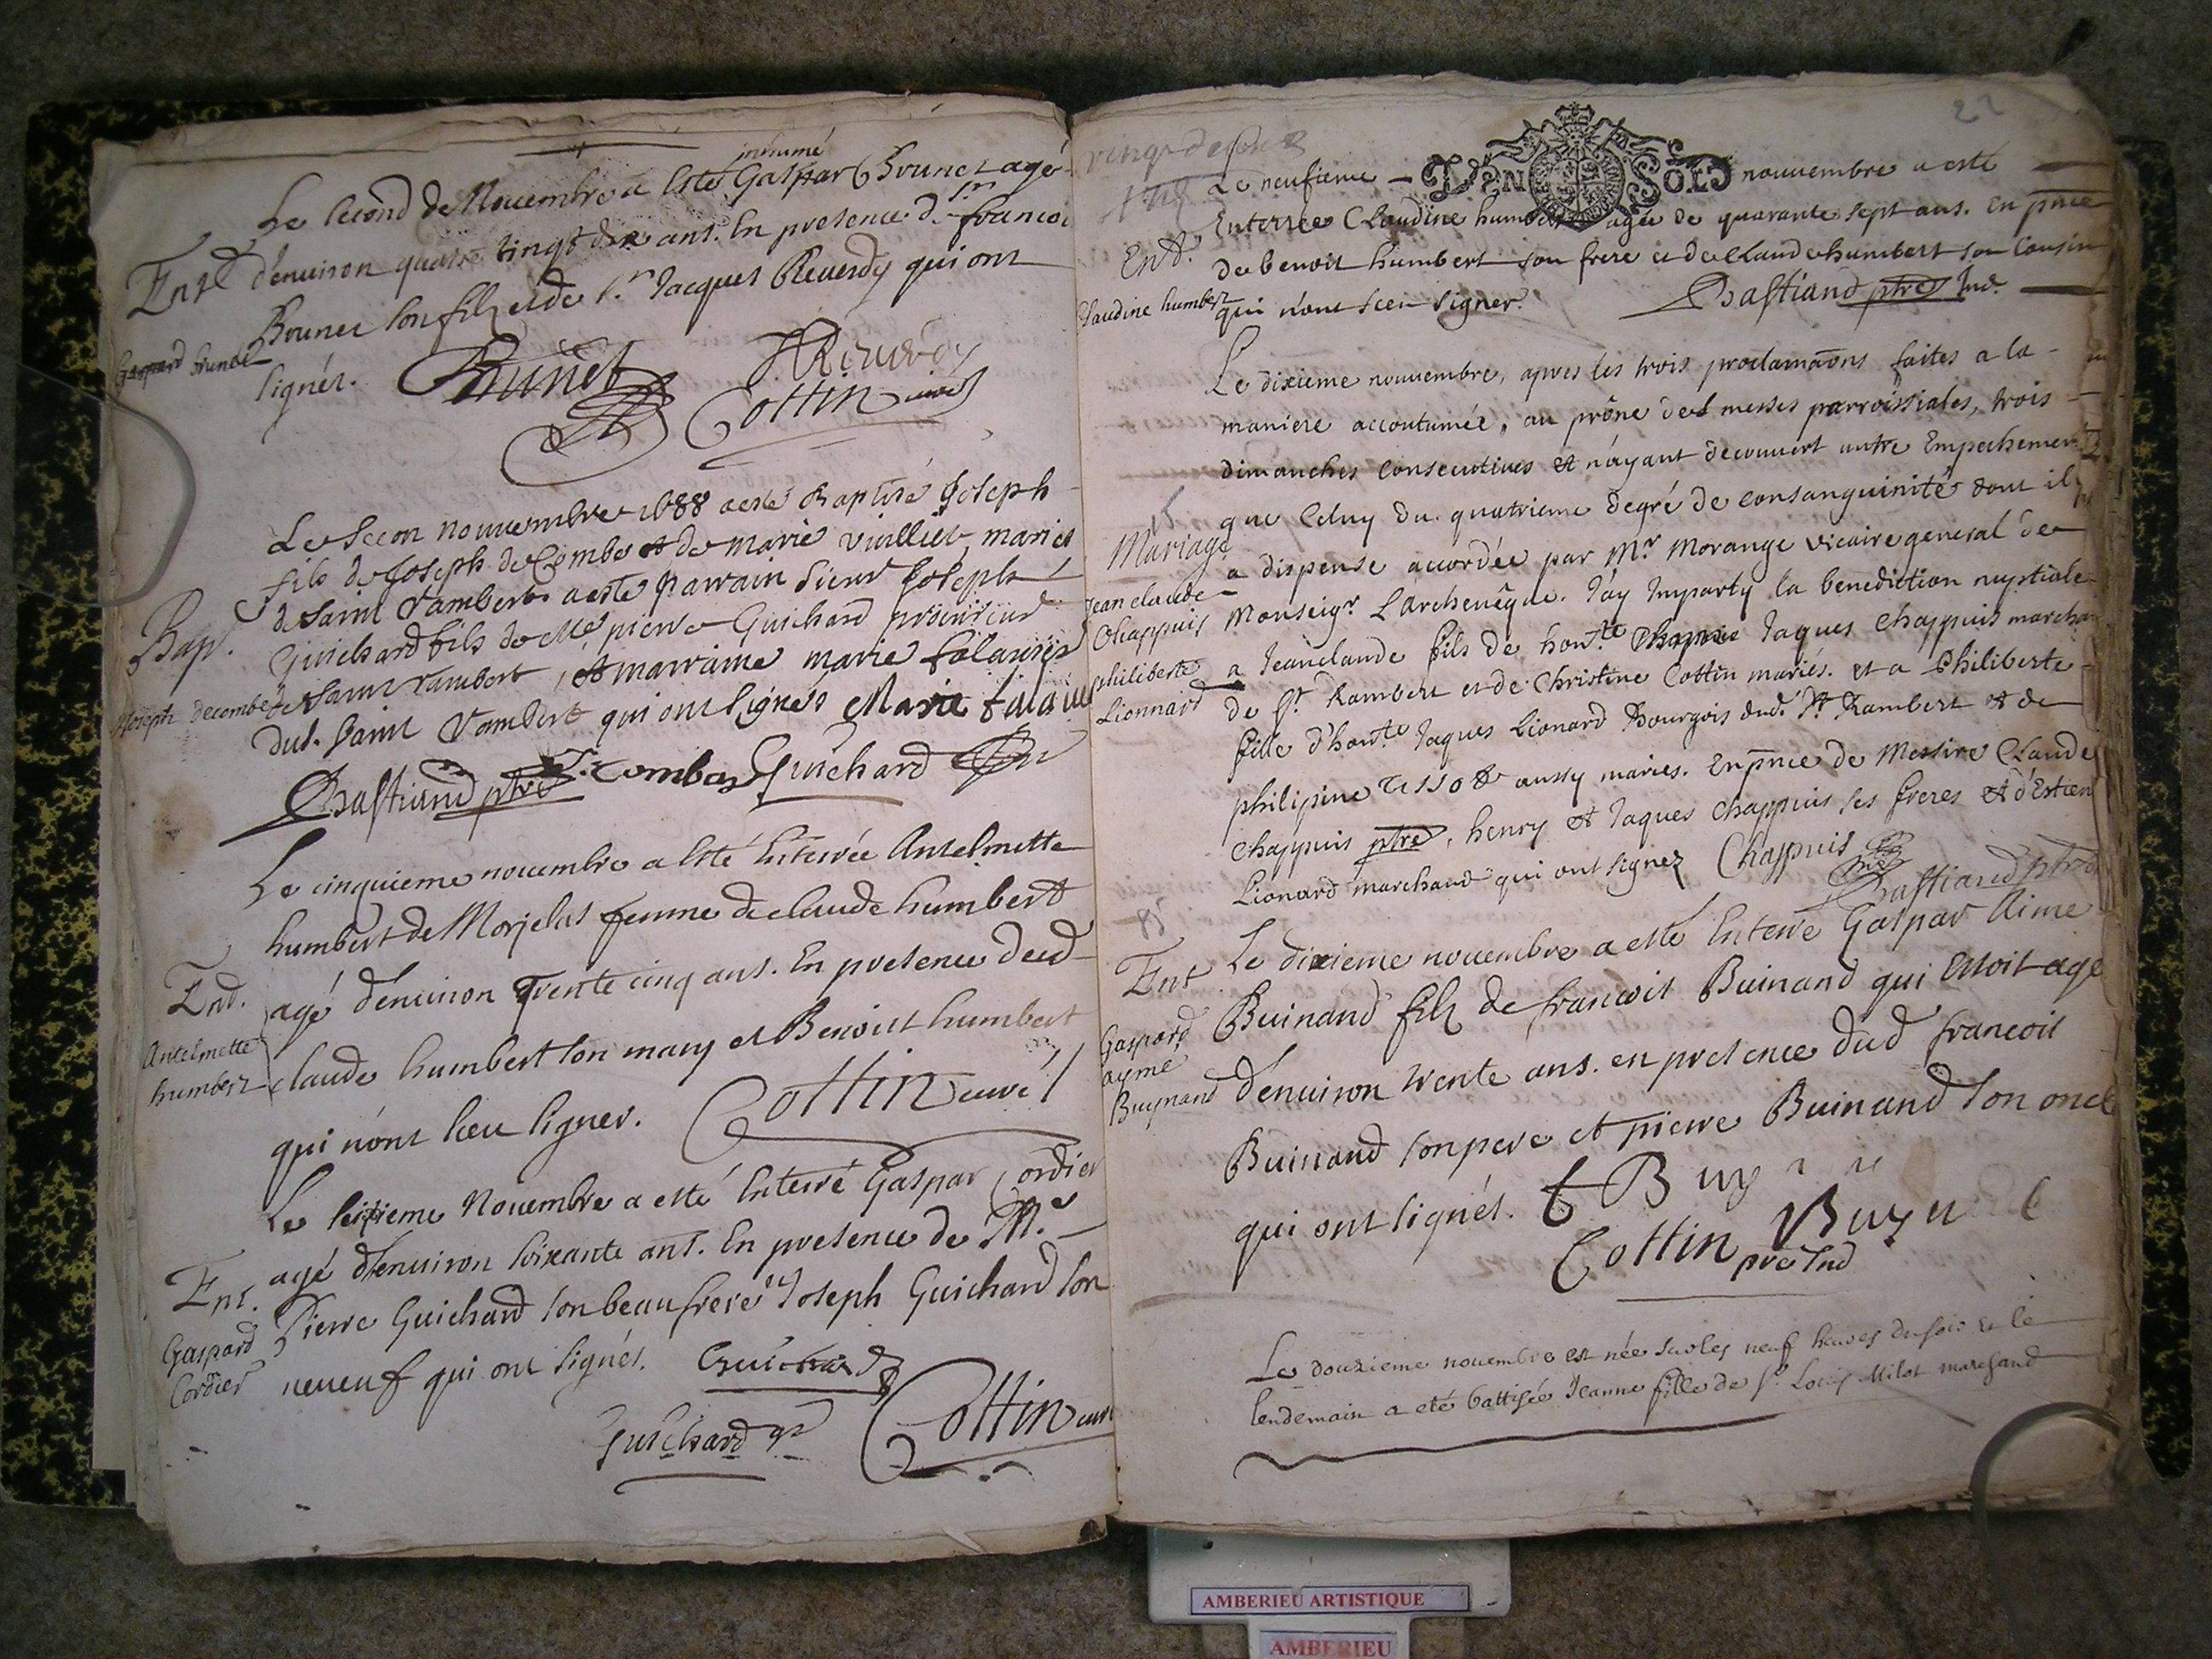 inhumé
Le second de Nouembre a esté Gaspar Brunet agé
Ent
d'enuiron quatre vingt dix ans. En presence de Sr francoi
Brunet son filz et de Sr Jacques Reuerdy qui ont
Gaspard brunet
signés. Brunet JReuerdy
Cottin curé
Le Secon nouuembre 1688 a esté Baptisé Joseph
fils de Joseph de Combe et de marie vuilliet mariés
de Saint rambert a esté parrain Sieur Joseph
Bap.
Guichard fils de Me pierre Guichard procureur
Joseph decombe
de Saint rambert, et marraine marie
dud. Saint rambert qui ont signés Marie
Bastiand ptre combe Guichard
Le cinquieme nouembre a esté Enterrée Antelmette
humbert de Morjelas femme de claude humbert
Ent.
agé d'enuiron trente cinq ans. En presence dud
Antelmette
humbert
claude humbert son mary et Benoist humbert
qui n'ont sceu signer. Cottin curé
Le seizieme Nouembre a esté Enterré Gaspar Cordier
agé d'enuiron soixante ans. En presence de Me
Ent.
Pierre Guichard son beau frere Joseph Guichard son
Gaspard
Cordier
neueuf qui ont signés. Guichard
Guichard Cottin curé
22
vingt deux
Le neufieme DEN SOLS nouuembre a esté
Enterree Claudine humbert agée de quarante sept ans. En pnce
Ent.
de benoit humbert son frere et de claude humbert son Cousin
Claudine humbert
qui n'ont sceu signer. Bastiand ptre Ind.
Le dixieme nouuembre, apres les trois proclamaons faites a la
maniere accoutumée, au prône des messes parroissiales, trois
dimanches Consecutiues et n'ayant decouuert autre Empechement
que Celuy du quatrieme degré de consanguinité dont il
Mariage
a dispense accordée par Mr Morange vicaire general de
Jean claude
Chappuis
Monseigr L'Archeuêque. J'ay Imparty la benediction nuptiale
philiberte
Lionnard
a Jeanclaude fils de honte Jaques Chappuis marchan
de St Rambert et de Christine Cottin mariés. et a Philiberte
fille d'honte Jaques Lionard Bourgois dud. St Rambert et de
philipine Tissot aussy maries. En pnce de Messire Claude
Chappuis ptre, henry et Jaques Chappuis ses freres et d'Estien
Lionard marchand qui ont signez Chappuis
Bastiand ptre
Le dixieme nouembre a esté Enterré Gaspar Aime
Ent
Buinand filz de francois Buinand qui estoit agé
Gaspard
ayme
Buynand
d'enuiron trente ans. en presence dud francois
Buinand son pere et pierre Buinand son oncle
qui ont signés.
Cottin
pre Ind
Le douzieme nouembre est née sur les neuf heures du soir et le
lendemain a eté battisée Jeanne fille de Sr Louis Milot marchand
AMBERIEU ARTISTIQUE
AMBERIEU